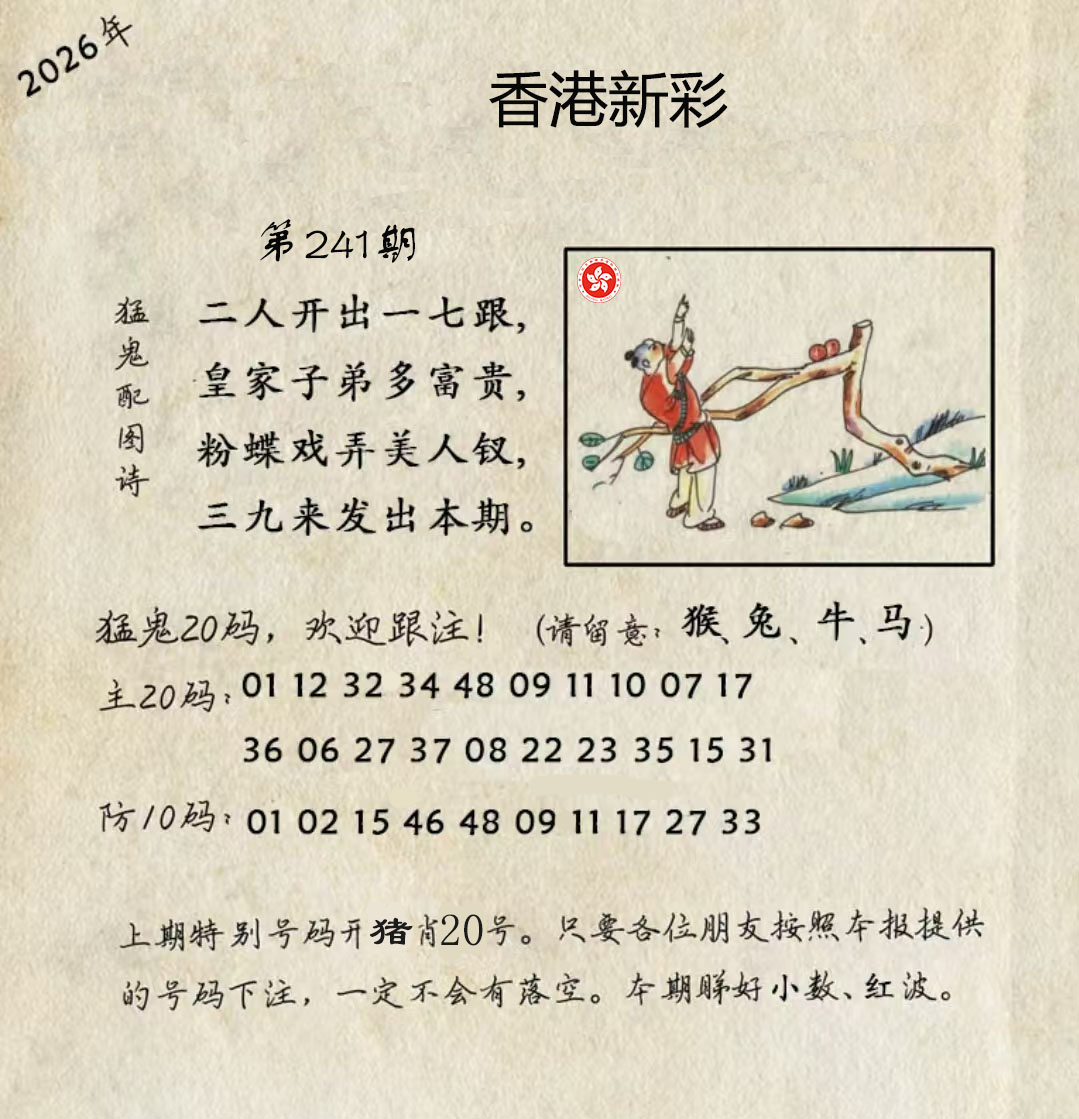 2026年
香港新彩
第241期
猛鬼配图诗
二人开出一七跟，
皇家子弟多富贵，
粉蝶戏弄美人钗，
三九来发出本期。
猛鬼20码，欢迎跟注！（请留意：猴、兔、牛、马）
主20码：01 12 32 34 48 09 11 10 07 17
36 06 27 37 08 22 23 35 15 31
防10码：01 02 15 46 48 09 11 17 27 33
上期特别号码开猪肖20号。只要各位朋友按照本报提供
的号码下注，一定不会有落空。本期睇好小数、红波。